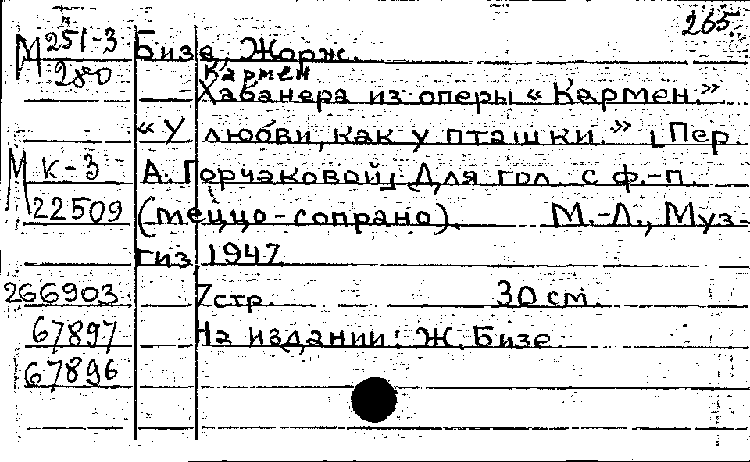 265.
М 251-3 Бизе, Жорж.
280 Кармен
Хабанера из оперы «Кармен.»
«У любви, как у пташки.» [Пер.
М К-3 А. Горчаковой] Для гол. с ф.-п.
22509 (меццо-сопрано). М.-Л., Муз-
гиз 1947
266903 7 стр. 30 см.
67897 На издании: Ж. Бизе
67896